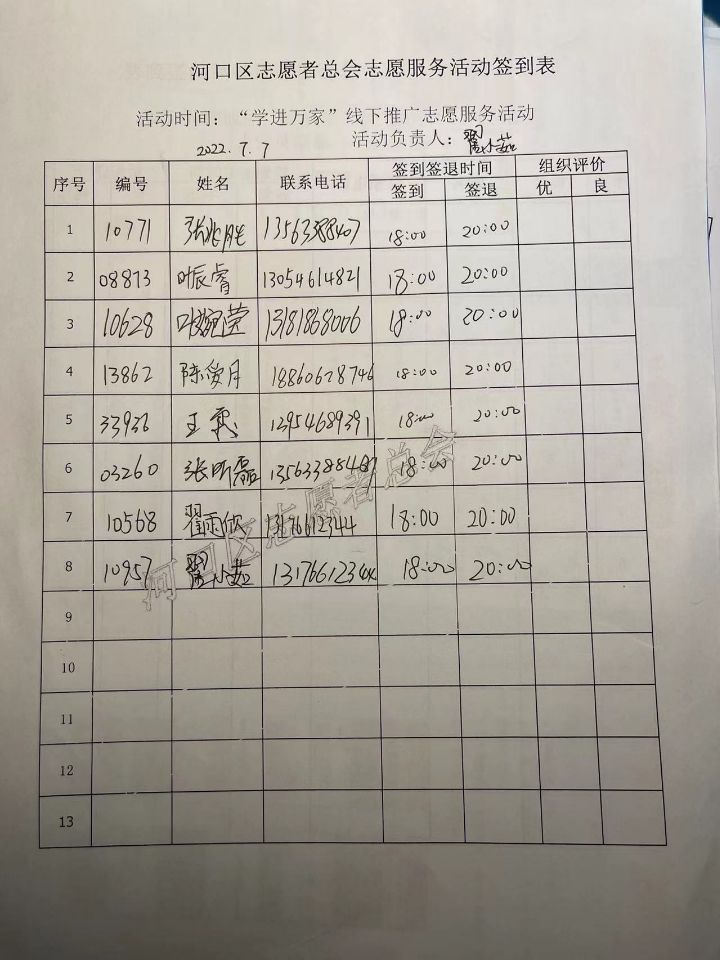 河口区志愿者总会志愿服务活动签到表
活动时间：“学进万家”线下推广志愿服务活动
2022.7.7 活动负责人：翟小茹
序号 编号 姓名 联系电话 签到签退时间 组织评价
签到 签退 优 良
1 10771 张兆胜 18:00 20:00
2 08873 叶辰睿 13054614821 18:00 20:00
3 10628 13181868006 18:00 20:00
4 13862 陈爱月 18860628746 18:00 20:00
5 33936 王 18:00 20:00
6 03260 张昕磊 18:00 20:00
7 10568 翟雨欣 13176612344 18:00 20:00
8 10957 翟小茹 13176612344 18:00 20:00
9
10
11
12
13
河口区志愿者总会